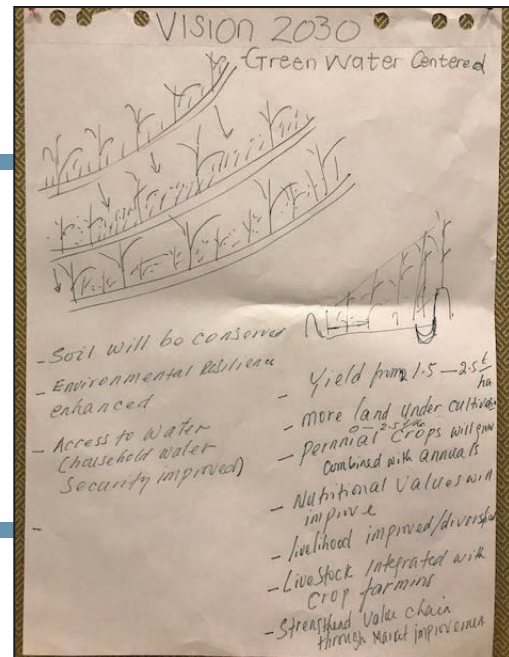 VISION 2030
Green Water Centered
- Soil will be conserved
- Environmental Resilience
enhanced
- Access to Water
(household water
Security improved)
-
- Yield from 1.5 – 2.5 t/ha
- more land under cultivation
0 – 2.5
- Pernnial Crops will grow
combined with annuals
- Nutritional Values will
improve
- livelihood improved/diversified
- Livestock Integrated with
Crop farming
- Strengthend Value chain
through Market improvemen